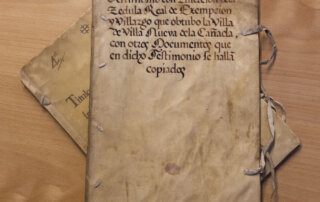 Testimonio con
Zedula Real de Exempcion
y Villazgo que obtubo la Villa
de Villa Nueva dela Cañada,
con otros Documentos que
en dicho Testimonio se halla
copiados